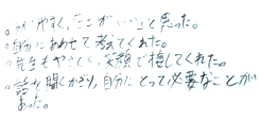 やすく、「ここがいい」と思った。
。自分にあわせて考えてくれた。
。先生もやさしく、笑顔で接してくれた。
。話を聞くかぎり、自分にとって必要なことが
あった。